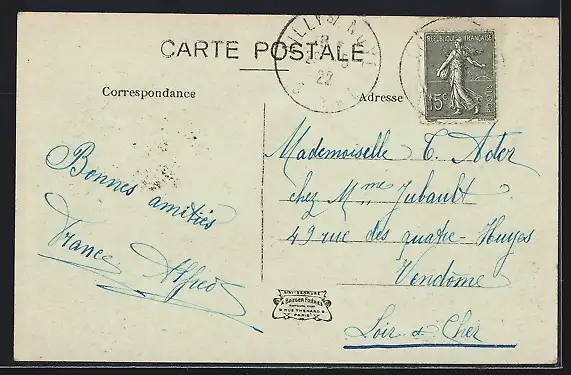 CARTE POSTALE
Correspondance
Adresse
REPUBLIQUE FRANÇAISE
15c
22
Bonnes amitiés
France Alfred
Mademoiselle
chez Mme Jubault
49 rue des quatre-Huyes
Vendôme
Loir & Cher
A. BREGER FRÈRES
9 RUE THÉNARD 9
PARIS